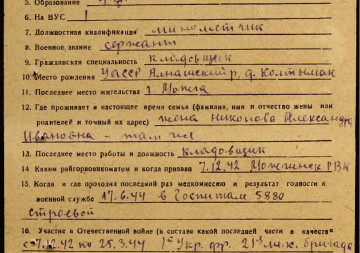 5. Образование
6. На ВУС
7. Должностная квалификация минометчик
8. Военное звание сержант
9. Гражданская специальность кладовщик
10. Место рождения УАССР Алнашский р, д.
11. Последнее место жительства г. Можга
12. Где проживает в настоящее время семья (фамилия, имя и отчество жены или
родителей и точный их адрес) жена Николова Александра
Ивановна – там же
13. Последнее место работы и должность кладовщик
14. Каким райгорвоенкоматом и когда призван 7.12.42 Можгинск РВК
15. Когда и где проходил последний раз медкомиссию и результат годности к
военной службе 17.6.44 в Госпитале 5880
строевой
16. Участие в Отечественной войне (в составе какой последней части в качестве
с 7.12.42 по 25.3.44 1й Укр. фр. 21я мех. бригада